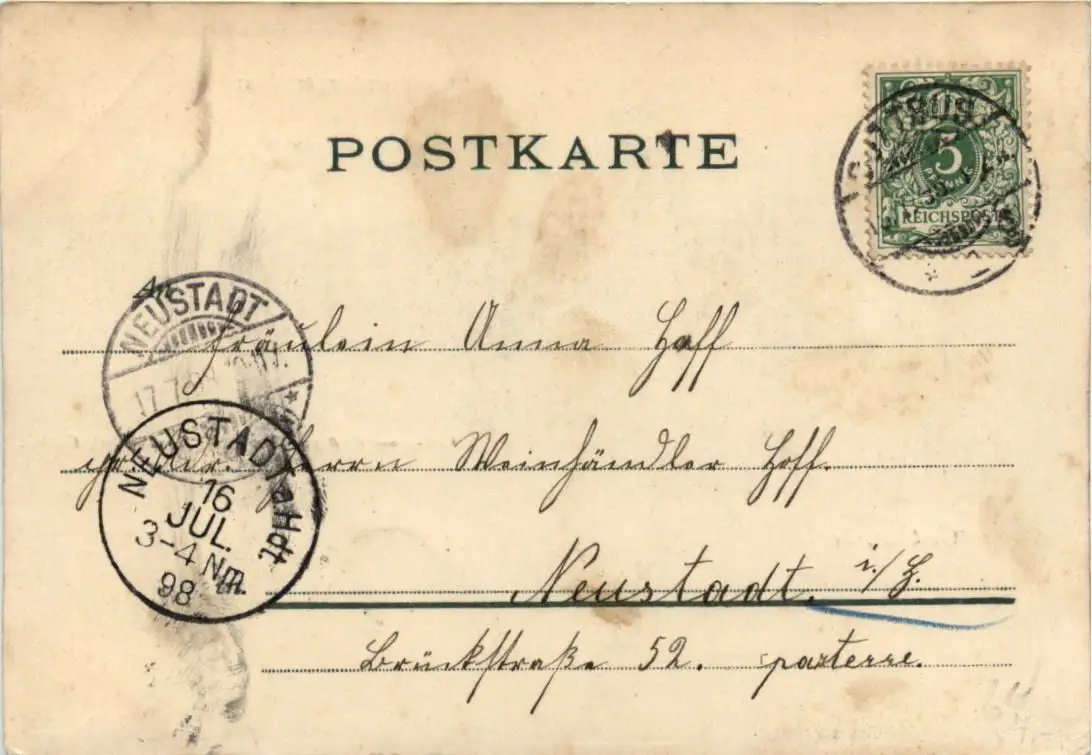 POSTKARTE
5
PFENNIG
REICHSPOST
An
NEUSTADT
17.7.
Fräulein Anna Hoff
Herrn Weinhändler Hoff.
NEUSTADT a Hdt
16
JUL.
3-4 Nm.
98
Neustadt. i./H.
Brückstraße 52. parterre.